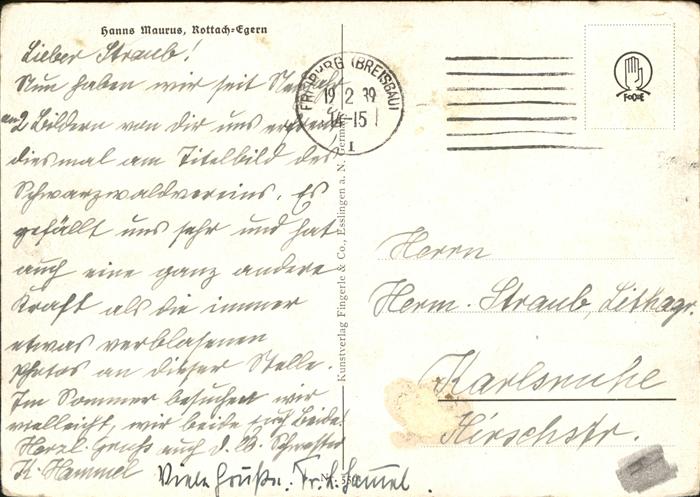 Hanns Maurus, Rottach-Egern
Lieber Straub!
Nun haben wir seit
an 2 Bildern von dir uns
diesmal am Titelbild des
Schwarzwaldvereins. Es
gefällt uns sehr und hat
auch eine ganz andere
Kraft als die immer
etwas verblasenen
Photos an dieser Stelle.
Im Sommer besuchen wir
vielleicht, wir beide Euch Beide!
Herzl. Gruß auch d.
K. Hammel
Viele Grüße.
FREIBURG (BREISGAU)
19 2 39
-15
1
Kunstverlag Fingerle & Co., Esslingen a. N.
FCE
Herrn
Herm. Straub, Lithogr.
Karlsruhe
Hirschstr.